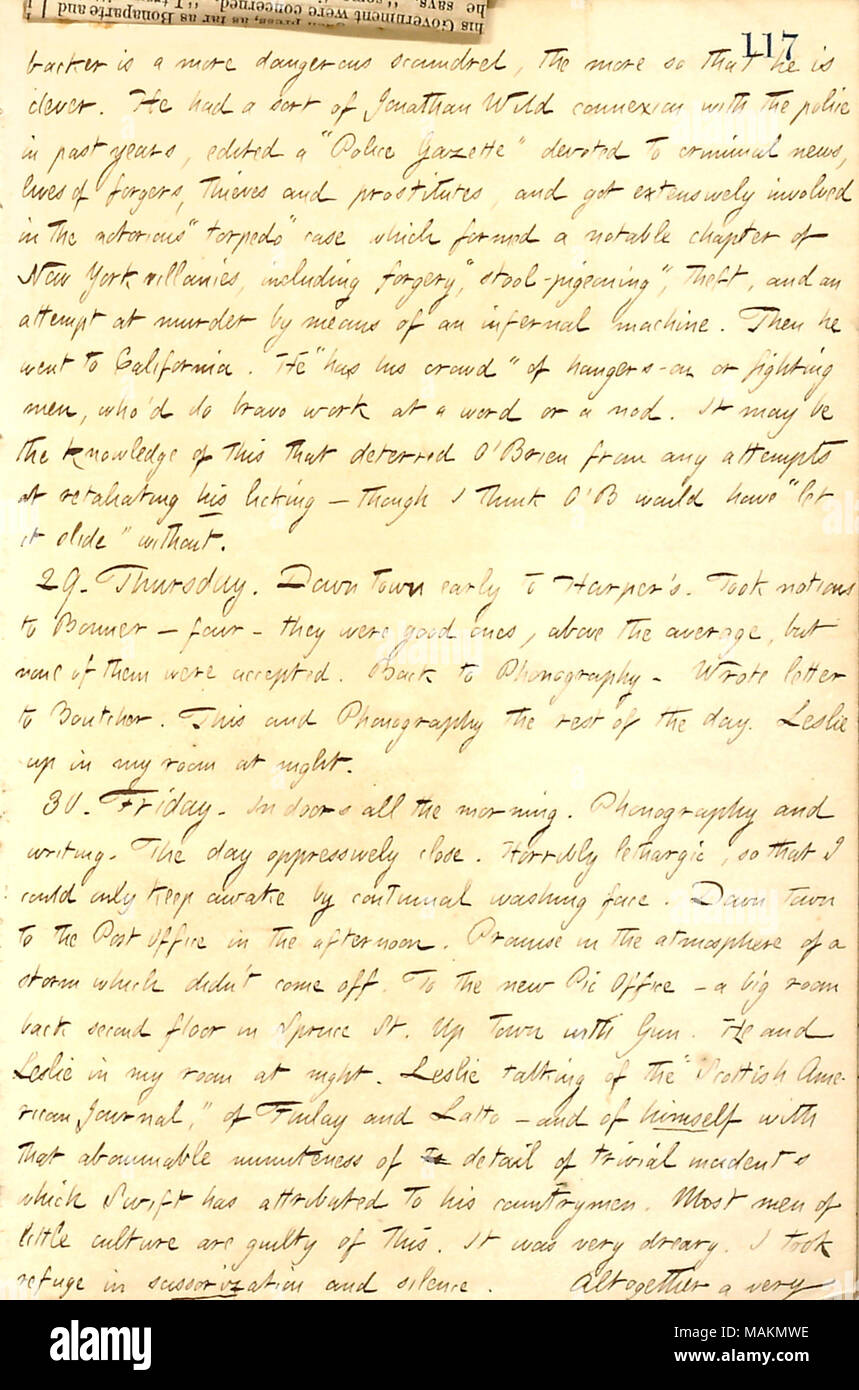 his Government were concerned.
far as Bonaparte and
he says.
117
backer is a more dangerous scoundrel, the more so that he is
clever. He had a sort of Jonathan Wild connexion with the police
in past years, edited a "Police Gazette" devoted to criminal news,
lives of forgers, thieves and prostitutes, and got extensively involved
in the notorious "torpedo" case which formed a notable chapter of
New York villanies, including forgery, "stool-pigeoning", theft, and an
attempt at murder by means of an infernal machine. Then he
went to California. He "has his crowd" of hangers-on or fighting
men, who'd do bravo work at a word or a nod. It may be
the knowledge of this that deterred O'Brien from any attempts
at retaliating his licking — though I think O'B would have "let
it slide" without.
29. Thursday. Down town early to Harper's. Took notions
to Bonner — four — they were good ones, above the average, but
none of them were accepted. Back to Phonography — Wrote letter
to Boutcher. This and Phonography the rest of the day. Leslie
up in my room at night.
30. Friday. In doors all the morning. Phonography and
writing. The day oppressively close. Horribly lethargic, so that I
could only keep awake by continual washing face. Down town
to the Post Office in the afternoon. Promise in the atmosphere of a
storm which didn't come off. To the new Pic Office — a big room
back second floor in Spruce St. Up Town with Gun. He and
Leslie in my room at night. Leslie talking of the "Scottish Ame-
rican Journal," of Finlay and Latto — and of himself with
that abominable minuteness of detail of trivial incidents
which Swift has attributed to his countrymen. Most men of
little culture are guilty of this. It was very dreary. I took
refuge in scissorization and silence. Altogether a very
alamy
Image ID: MAKMWE
www.alamy.com